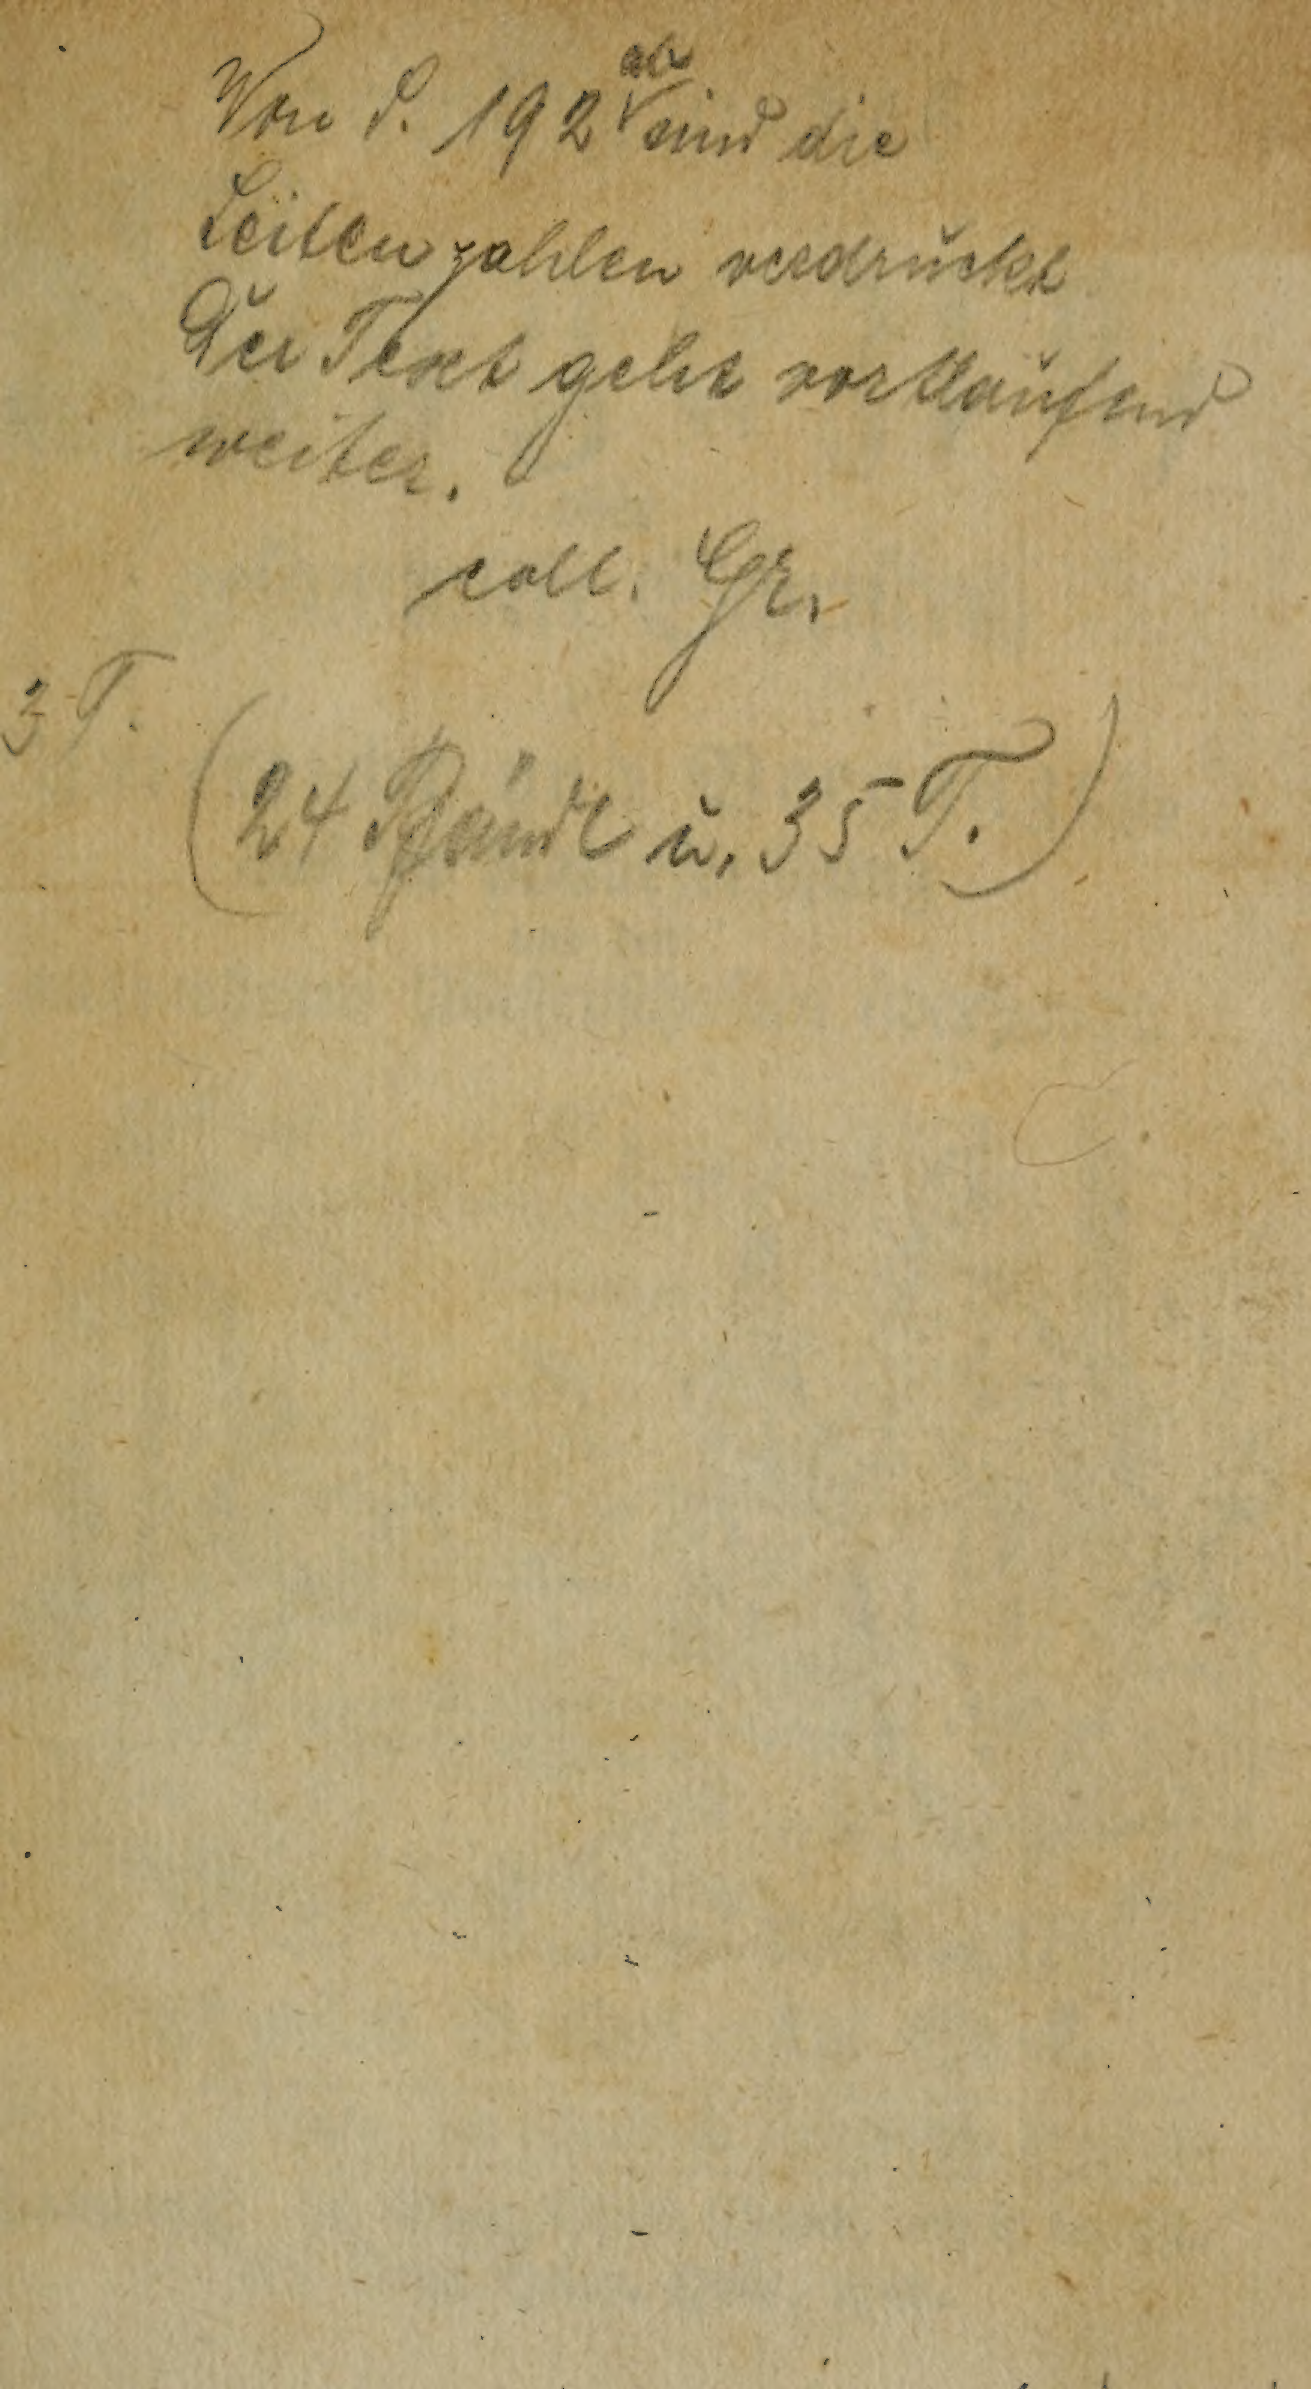 Von S. 192 ab sind die
Seitenzahlen verdruckt
Der Text geht vortlaufend
weiter.
coll. Gr.
3 T.
(24 Bände u. 35 T.)